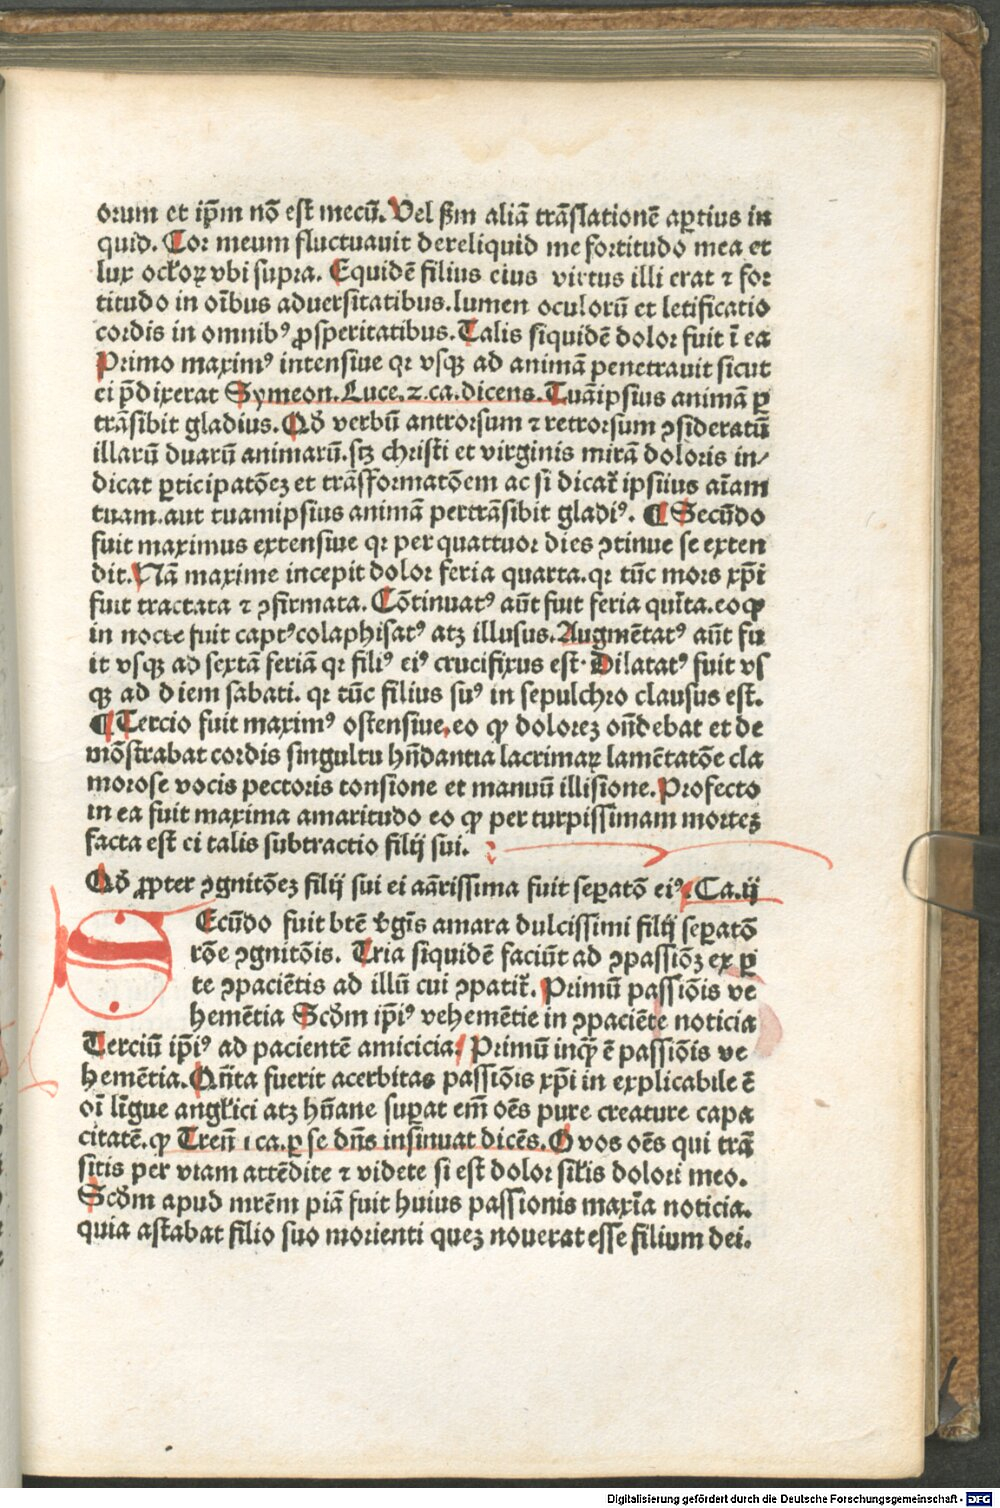 orum et ip̄m nō est mecū. Vel ẜm aliā trāslationē aꝑtius in
quid. Cor meum fluctuauit dereliquid me fortitudo mea et
lux oc̄loꝝ vbi supra. Equidē filius eius virtus illi erat ⁊ for
titudo in oībus aduersitatibus. lumen oculorū et letificatio
cordis in omnibꝰ ꝓsperitatibus. Talis siquidē dolor fuit ī ea
Primo maximꝰ intensiue qꝛ vsqꝫ ad animā penetrauit sicut
ei p̄dixerat Symeon. Luce. 2. ca. dicens. Tuāipsius animā ꝑ
trāsibit gladius. Qđ verbū antrorsum ⁊ retrorsum ꝯsideratū
illarū duarū animarū. sꝫ christi et virginis mirā doloris in⸗
dicat ꝑticipatōeꝫ et trāsformatōem ac si dicat̄ ipsiius aīam
tuam. aut tuamipsius animā pertrāsibit gladiꝰ. ¶ Secūdo
fuit maximus extensiue qꝛ per quattuor dies ꝯtinue se exten
dit. Nā maxime incepit dolor feria quarta. qꝛ tūc mors xp̄i
fuit tractata ⁊ ꝯfirmata. Cōtinuatꝰ aūt fuit feria quīta. eo ꝙ
in nocte fuit captꝰ colaphisatꝰ atꝫ illusus. Augmētatꝰ aūt fu
it vsqꝫ ad sextā feriā qꝛ filiꝰ eiꝰ crucifixus est. Dilatatꝰ fuit vs
qꝫ ad diem sabati. qꝛ tūc filius suꝰ in sepulchro clausus est.
¶ Tercio fuit maximꝰ ostensiue, eo ꝙ doloreꝫ on̄debat et de
mōstrabat cordis singultu hn̄dantia lacrimaꝝ lamētatōe cla
morose vocis pectoris tonsione et manuū illisione. Profecto
in ea fuit maxima amaritudo eo ꝙ per turpissimam morteꝫ
facta est ei talis subtractio filij sui.
Qđ ꝓpter ꝯgnitōeꝫ filij sui ei aārissima fuit seꝑatō eiꝰ. Ca. ij
Secūdo fuit btē v̄gīs amara dulcissimi filij seꝑatō
rōe ꝯgnitōis. Tria siquidē faciūt ad ꝯpassiōꝫ ex ꝑ
te ꝯpaciētis ad illū cui ꝯpatit̄. Primū passiōis ve
hemētia Scđm ip̄iꝰ vehemētie in ꝯpaciēte noticia
Terciū ip̄iꝰ ad pacientē amicicia. Primū inqꝫ ē passiōis ve
hemētia. Qn̄ta fuerit acerbitas passiōis xp̄i in explicabile ē
oī līgue angl̄ici atꝫ hūane suꝑat em̄ oēs pure creature capa
citatē. ꝙ Tren̄ 1 ca. ꝑ se dn̄s insinuat dicēs. O vos oēs qui trā
sitis per viam attēdite ⁊ videte si est dolor sil̄is dolori meo.
Scđm apud mr̄em piā fuit huius passionis maxīa noticia.
quia astabat filio suo morienti queꝫ nouerat esse filium dei.
Digitalisierung gefördert durch die Deutsche Forschungsgemeinschaft - DFG